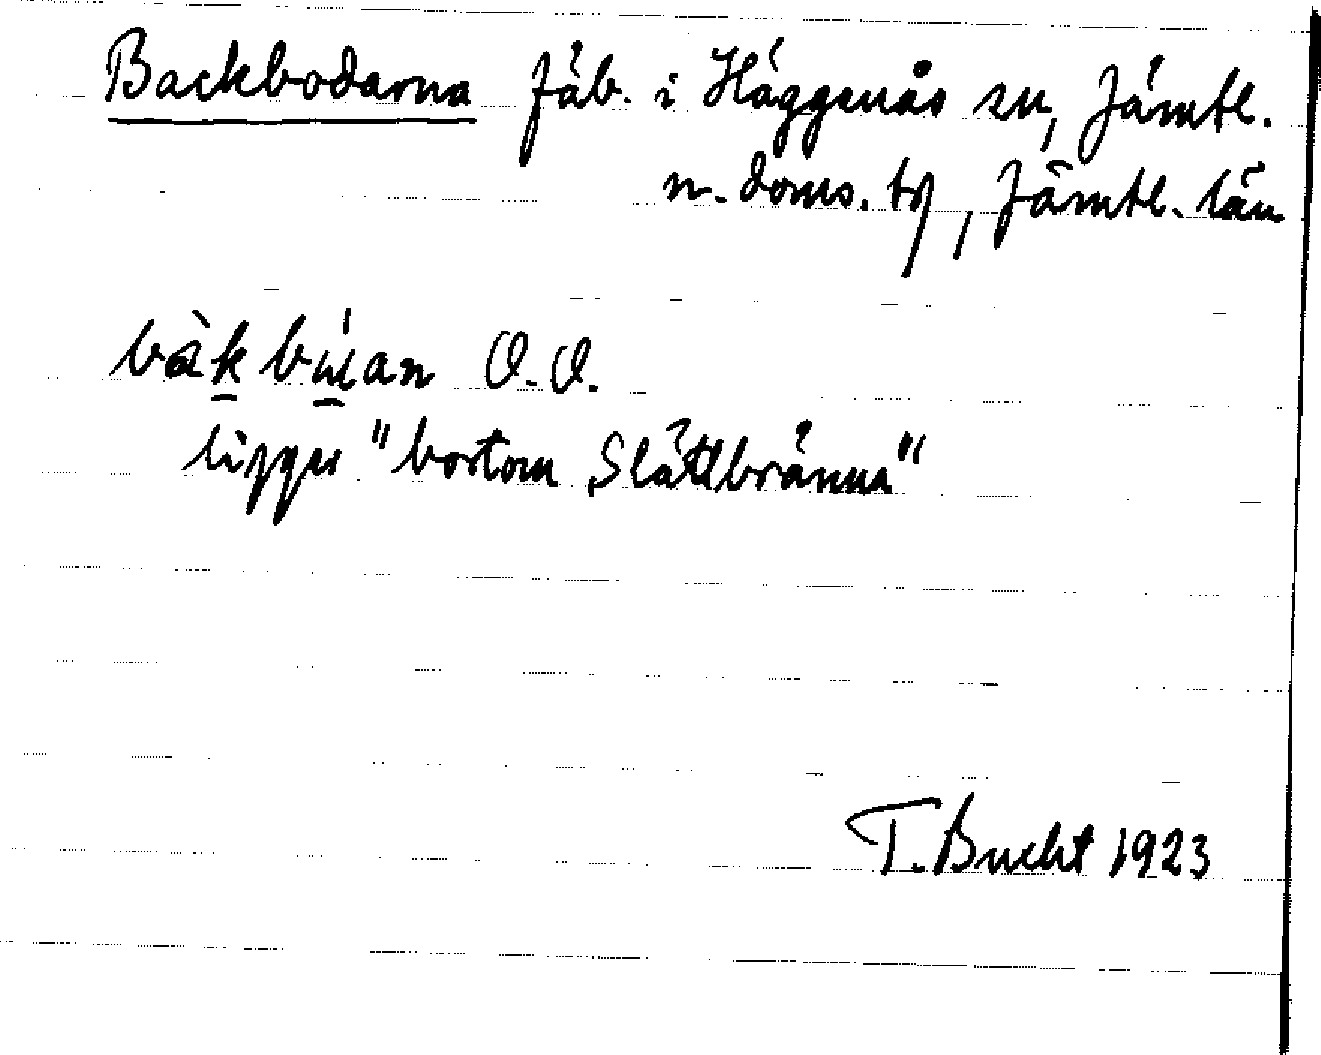 Backbodarna fäb. i Häggenås sn, Jämtl.
n. doms. tg, Jämtl. län
O.O.
ligger "bortom Slättbränna"
T. Bucht 1923